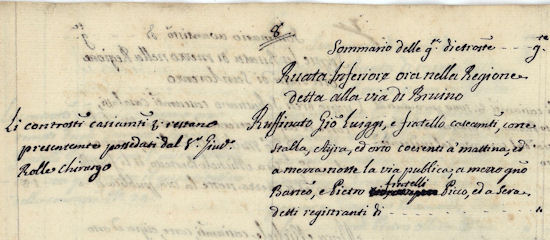 8
Sommario delle g.te dietroste - - - - g.te
Ruata Inferiore ora nella Regione
detta alla via di Bruino
Li controstti casiamti restano
presentante posseduti dal Sr. Giusr.
Rolle Chirurgo
Ruffinato Gio Luiggi, e fratello casiamti, corte
stalla, Ajra, ed orto coerenti a mattina, ed
a mezza notte la via publica, a mezzo gno
Bareo, e Pietro fratelli Picco, ed a sera
detti registranti di - - - - - -